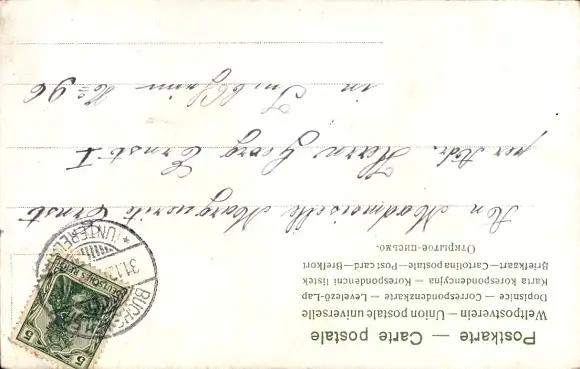 Postkarte — Carte postale
Weltpostverein — Union postale universelle
Dopisnice — Correspondenzkarte — Levelező-Lap
Karta korespondencyjna — Korespondencni listek
Briefkaart — Cartolina postale — Post card — Brefkort
Открытое письмо.
DEUTSCHES REICH
5
5
31.12
(UNTEREL
An Mademoiselle Marguerite Ernst
per Adr. Herrn Georg Ernst I
in
No 96